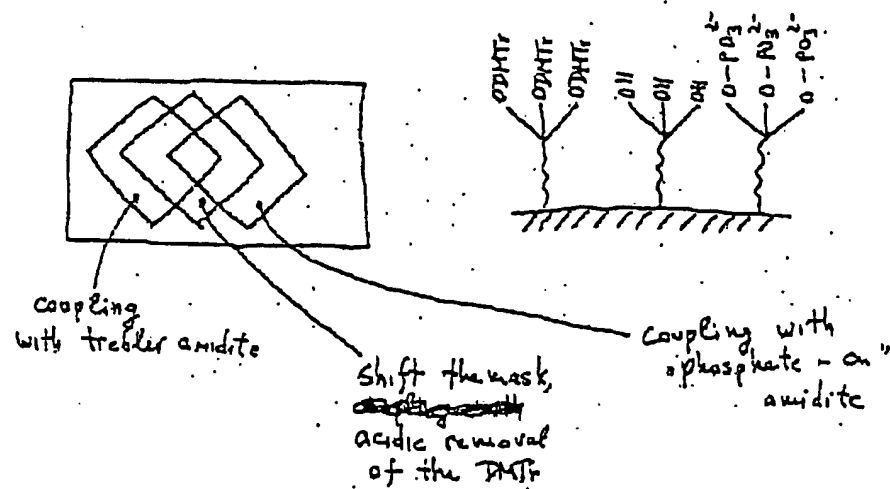 ODMTr ODMTr ODMTr OH OH OH O-PO₃²⁻ O-PO₃²⁻ O-PO₃²⁻
coupling
with trebler amidite
shift the mask,
acidic removal
of the DMTr
coupling with
"phosphate-on"
amidite